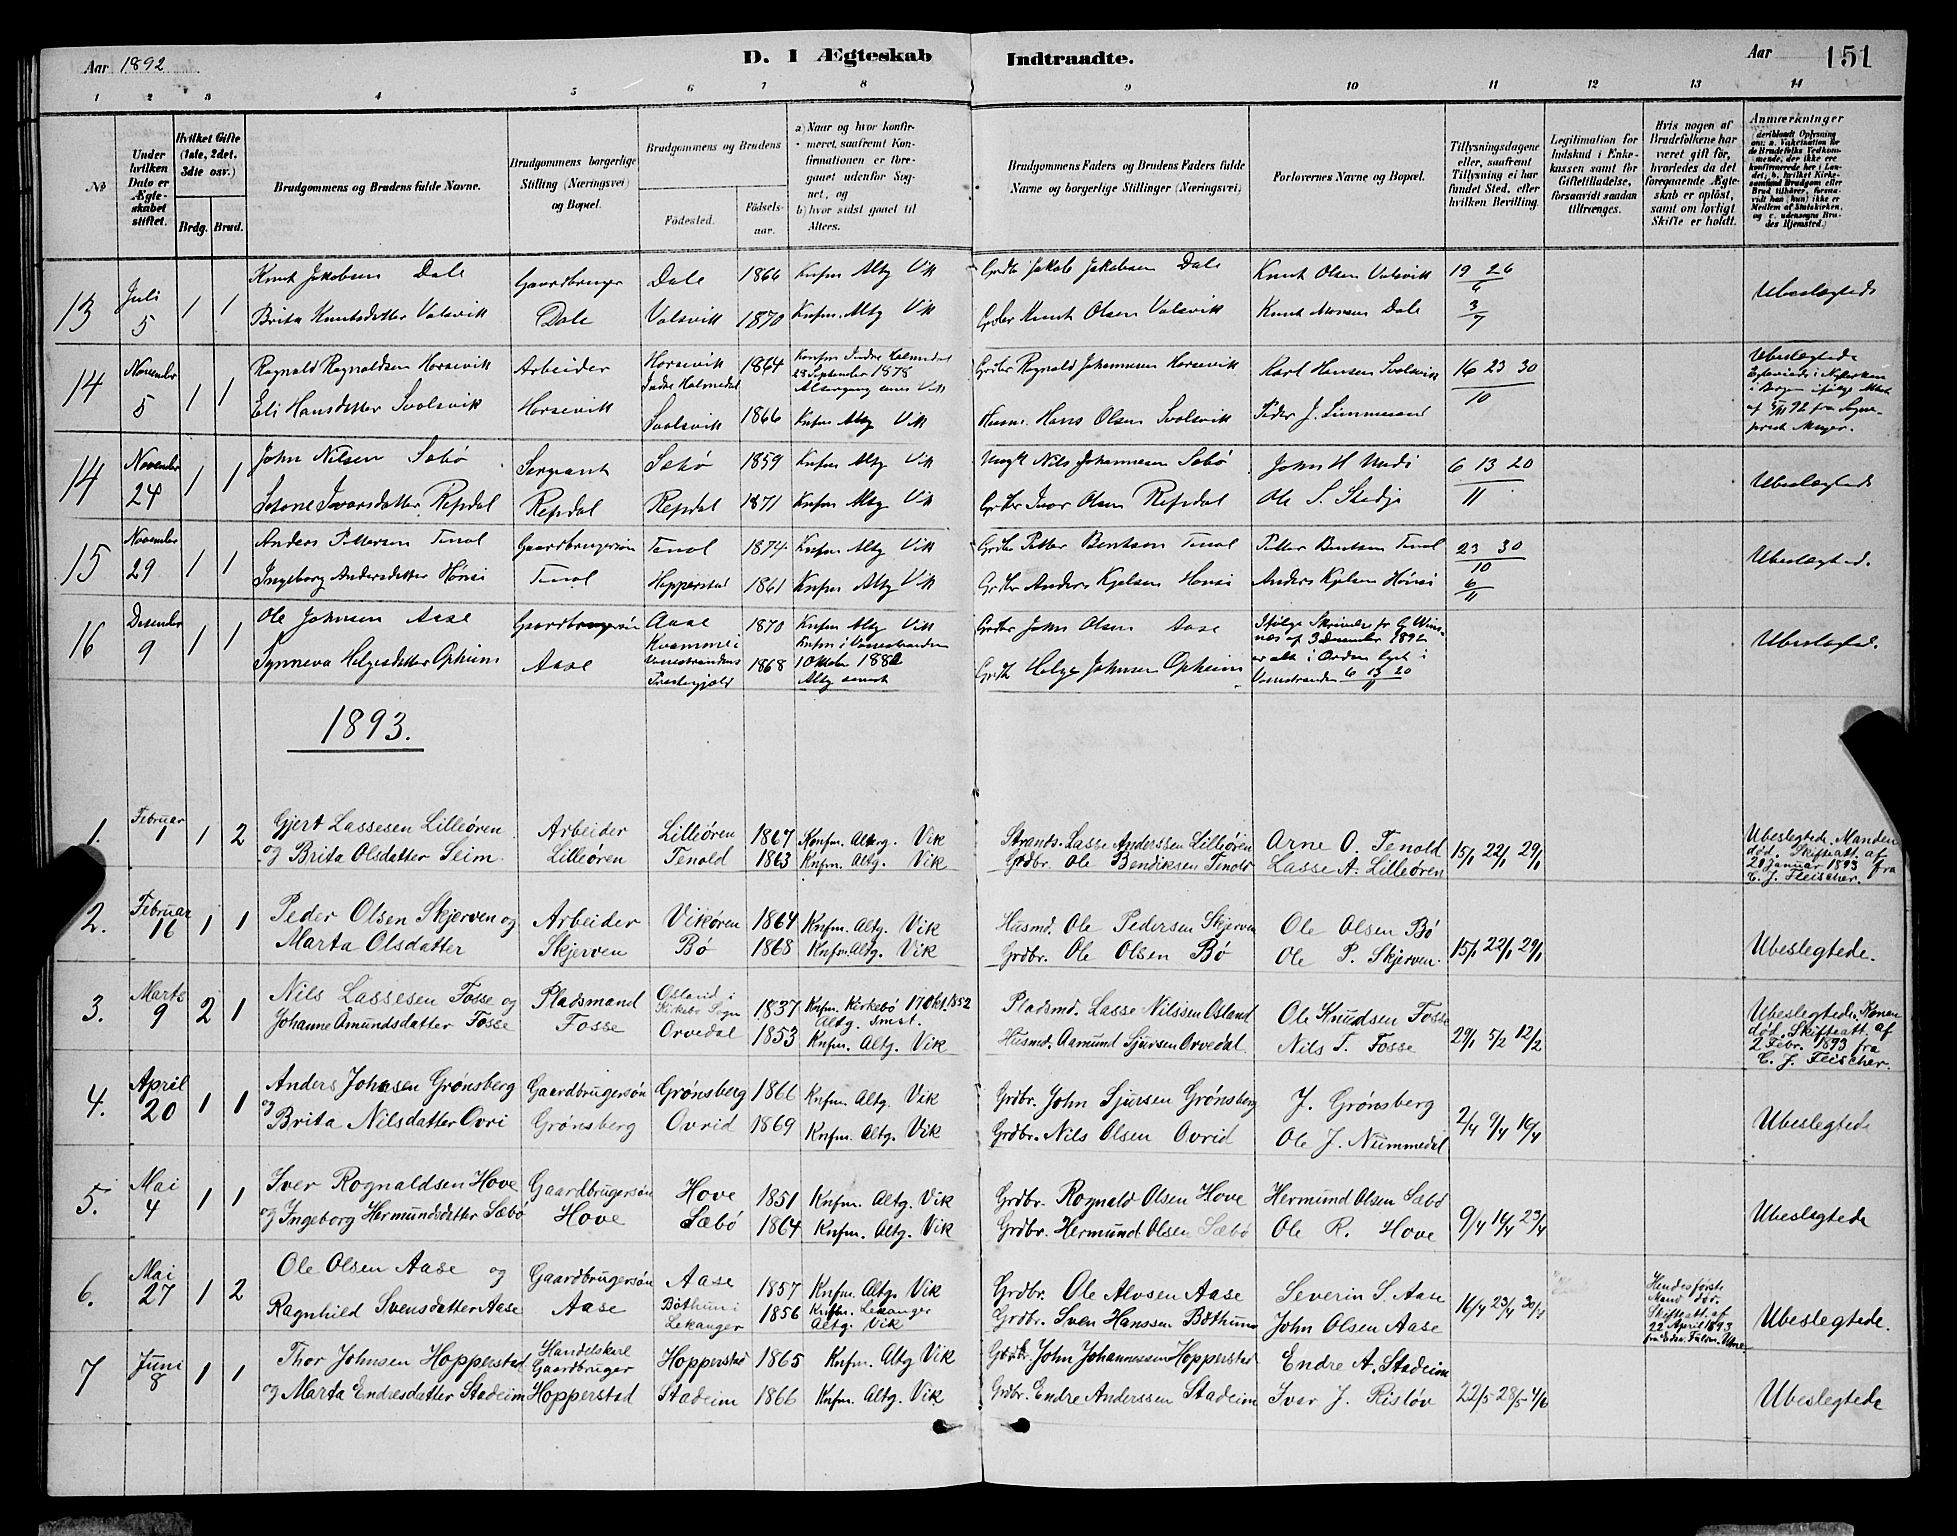 Aar 1892
D. I Ægteskab Indtraadte.
Aar 151
1 2 3 4 5 6 7 8 9 10 11 12 13 14
No
Under hvilken Dato er Ægteskabet stiftet.
Hvilket Gifte (1ste, 2det, 3dte osv.)
Brdg. Brud.
Brudgommens og Brudens fulde Navne.
Brudgommens borgerlige Stilling (Næringsvei) og Bopæl.
Brudgommens og Brudens
Fødested.
Fødselsaar.
a) Naar og hvor konfirmeret, saafremt Konfirmationen er foregaaet udenfor Sognet, og
b) hvor sidst gaaet til Alters.
Brudgommens Faders og Brudens Faders fulde Navne og borgerlige Stillinger (Næringsvei)
Forlovernes Navne og Bopæl.
Tillysningsdagene eller, saafremt Tillysning ei har fundet Sted, efter hvilken Bevilling.
Legitimation for Indskud i Enkekassen samt for Giftetilladelse, forsaavidt saadan tiltrænges.
Hvis nogen af Brudefolkene har været gift før, hvorledes da det foregaaende Ægteskab er opløst, samt om lovligt Skifte er holdt.
Anmærkninger (deriblandt Oplysning om: a. Vaksination for de Brudefolks Vedkommende, der ikke ere konfirmerede her i Landet; b. hvilket Kirkesamfund Brudgom eller Brud tilhører, forsaavidt han (hun) ikke er Medlem af Statskirken, og c. udensogns Brudes Hjemsted.)
13 Juli 5 1 1 Knut Jakobsen Dale Gaardbruger Dale 1866 Knfm Altg Vik Grdbr Jakob Jakobsen Dale Knut Olsen Valsvik 19 26/6
Brita Knutsdatter Valsvik Dale Valsvik 1870 Knfm. Altg Vik Grdbr Knut Olsen Valsvik Knut Monsen Dale 3/7 Ubeslægtede
14 November 5 1 1 Ragnald Ragnaldsen Horsevik Arbeider Horsevik Indre Holmedal 1864 Konfm Indre Holmedal 28 September 1878 Altergang Vik Grdbr Ragnald Johannesen Horsevik Karl Hansen Svolsvik 16 23 30/10
Eli Hansdatter Svolsvik Horsevik Svolsvik 1866 Knfm Altg Vik Husm. Hans Olsen Svolsvik Peder J. Ubeslægtede
i Bergen ifølge Attest af 92 fra Sogneprest Meyer.
14 November 24 1 1 John Nilsen Sæbø Sergeant Sæbø 1859 Knfm Altg Vik Nils Johannesen Sæbø John H 6 13 20/11
Ivarsdatter Refsdal Refsdal Refsdal 1871 Knfm Altg Vik Grdbr Ivar Olsen Refsdal Ole S. Stedje Ubeslægtede
15 November 29 1 1 Anders Pettersen Tenol Gaardbrugersøn Tenol 1874 Knfm Altg Vik Grdbr Petter Bentsen Tenol Petter Bentsen Tenol 23 30/10
Ingeborg Andersdatter Hønsi Tenol Hopperstad 1861 Knfm Altg Vik Grdbr Anders Kjelsen Hønsi Anders Kjelsen Hønsi 6/11 Ubeslægted.
16 Desember 9 1 1 Ole Johnsen Aase Gaardbrugersøn Aase 1870 Knfm Altg Vik Grdbr John Olsen Aase Ifølge Skrivelse fr af 3 Desember 1892
Synneva Helgesdatter Opheim Aase Kvamme i Vossestrandens Prestegjeld 1868 Knfm i Vossestranden 1 Oktober 1882 Altg Grdb Helge Johnsen Opheim er alt i Orden lyst i Vossestranden 6 13 20/11 Ubeslægted.
1893.
1. Februar 1 1 2 Gjert Lassesen Lilleøren Arbeider Lilleøren 1867 Konfm. Alterg. Vik Strands. Lasse Anderssen Lilleøren Arne O. Tenold 15/1 22/1 29/1
og Brita Olsdatter Seim Lilleøren Tenold 1863 Knfm. Altg. Vik Grdbr. Ole Bendiksen Tenold Lasse A. Lilleøren
Ubeslegtede. Manden død. Skifteatt. af 20 januar 1893 fra C. J. Fleischer.
2. Februar 16 1 1 Peder Olsen Skjerven og Arbeider Vikøren 1864 Knfm. Altg. Vik Husmd. Ole Pedersen Skjerven Ole Olsen Bø
Marta Olsdatter Skjerven Bø 1868 Knfm. Altg. Vik Grdbr. Ole Olsen Bø Ole P. Skjerven. 15/1 22/1 29/1 Ubeslegtede.
3. Marts 9 2 1 Nils Lassesen Fosse og Pladsmand Osland i Kirkebø Sogn 1837 Knfm. Kirkebø 17 Okt. 1852 Altg. smst. Pladsmd. Lasse Nilssen Osland Ole Knudsen Fosse
Johanne Åmundsdatter Fosse Fosse Orvedal 1853 Knfm. Altg. Vik Husmd. Aamund Sjursen Orvedal Nils T. Fosse 29/1 5/2 12/2
Ubeslegtede. Konen død. Skifteatt. af 2 Febr. 1893 fra C. J. Fleischer.
4. April 20 1 1 Anders Johnsen Grønsberg Gaardbrugersøn Grønsberg 1866 Knfm. Altg. Vik Grdbr. John Sjursen Grønsberg J. Grønsberg
og Brita Nilsdatter Ovri Grønsberg Ovrid 1869 Knfm. Altg. Vik Grdbr. Nils Olsen Ovrid Ole J. Nummedal 2/4 9/4 16/4 Ubeslegtede
5. Mai 4 1 1 Iver Rognaldsen Hove Gaardbrugersøn Hove 1851 Knfm. Altg. Vik Grdbr. Rognald Olsen Hove Hermund Olsen Sæbø
og Ingeborg Hermundsdatter Sæbø Hove Sæbø 1864 Knfm. Altg. Vik Grdbr. Hermund Olsen Sæbø Ole R. Hove 9/4 16/4 23/4 Ubeslegtede
6. Mai 27 1 2 Ole Olsen Aase og Gaardbrugersøn Aase 1857 Knfm. Altg. Vik Grdbr. Ole Alvsen Aase Severin S. Aase
Ragnhild Svensdatter Aase Aase Bøthun i Lekanger 1856 Knfm. Lekanger Altg. Vik Grdbr. Sven Hanssen Bøthun John Olsen Aase 16/4 23/4 30/4
Hendes første Mand død. Skifteatt. af 22 April 1893 Ubeslegtede.
7 Juni 8 1 1 Thor Johnsen Hopperstad Handelskarl Gaardbruger Hopperstad 1865 Knfm. Altg Vik Gardbr. John Johannessen Hopperstad Endre A. Stadeim
og Marta Endresdatter Stadeim Hopperstad Stadeim 1866 Knfm. Altg. Vik Grdbr. Endre Anderssen Stadeim Iver J. Risløv 22/5 28/5 4/6 Ubeslegtede